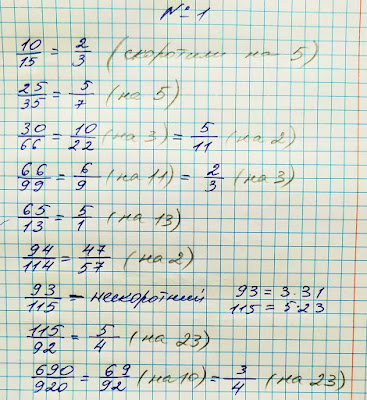 № 1
10/15 = 2/3 (скоротили на 5)
25/35 = 5/7 (на 5)
30/66 = 10/22 (на 3) = 5/11 (на 2)
66/99 = 6/9 (на 11) = 2/3 (на 3)
65/13 = 5/1 (на 13)
94/114 = 47/57 (на 2)
93/115 – нескоротний 93 = 3·31
115 = 5·23
115/92 = 5/4 (на 23)
690/920 = 69/92 (на 10) = 3/4 (на 23)